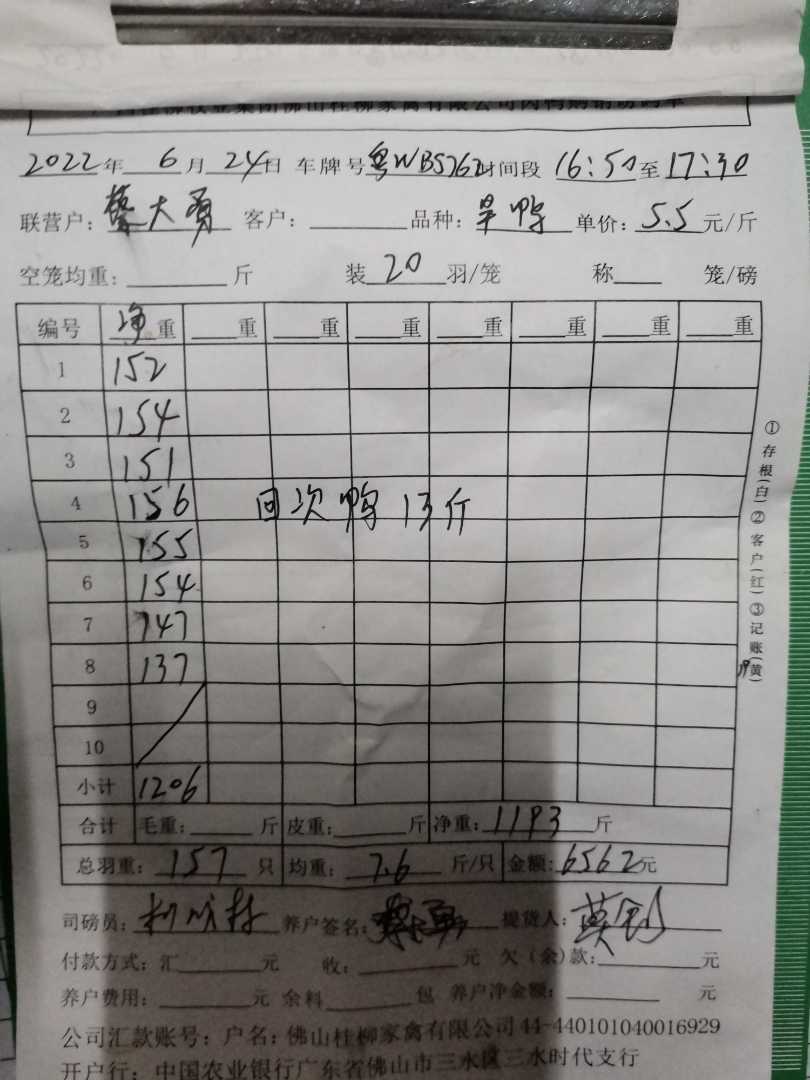 2022年 6月 24日 车牌号粤WBS762时间段 16:50至17:30
联营户:蔡大勇 客户:______品种:旱鸭 单价:5.5元/斤
空笼均重:______斤 装20羽/笼 称____笼/磅
编号 净重 ___重 ___重 ___重 ___重 ___重 ___重 ___重
1 152
2 154
3 151
4 156 回次鸭13斤
5 155
6 154
7 147
8 137
9
10
小计 1206
合计 毛重:_____斤 皮重:_____斤 净重:1193斤
总羽重:157只 均重:7.6斤/只 金额:6562元
司磅员: 养户签名: 提货人:
付款方式:汇______元 收:______元 欠(余)款:______元
养户费用:______元 余料______包 养户净金额:______元
公司汇款账号:户名:佛山桂柳家禽有限公司44-440101040016929
开户行:中国农业银行广东省佛山市三水区三水时代支行
①存根(白)②客户(红)③记账(黄)